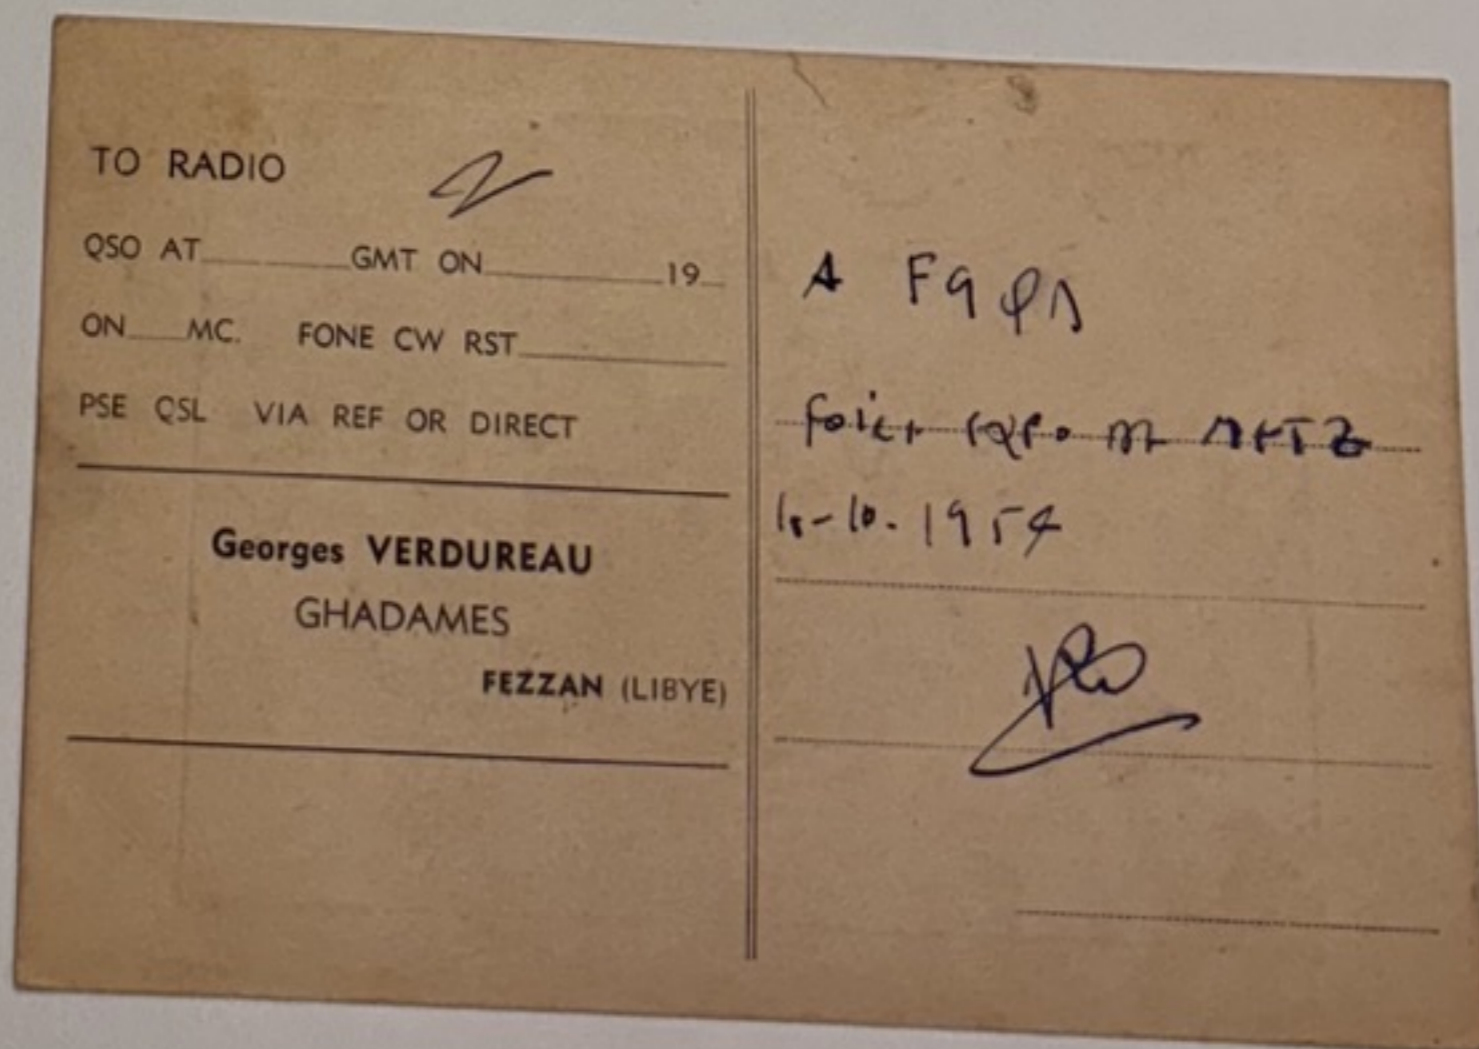 TO RADIO
QSO AT GMT ON 19
ON MC. FONE CW RST
PSE QSL VIA REF OR DIRECT
Georges VERDUREAU
GHADAMES
FEZZAN (LIBYE)
A F9
METZ
10. 1954